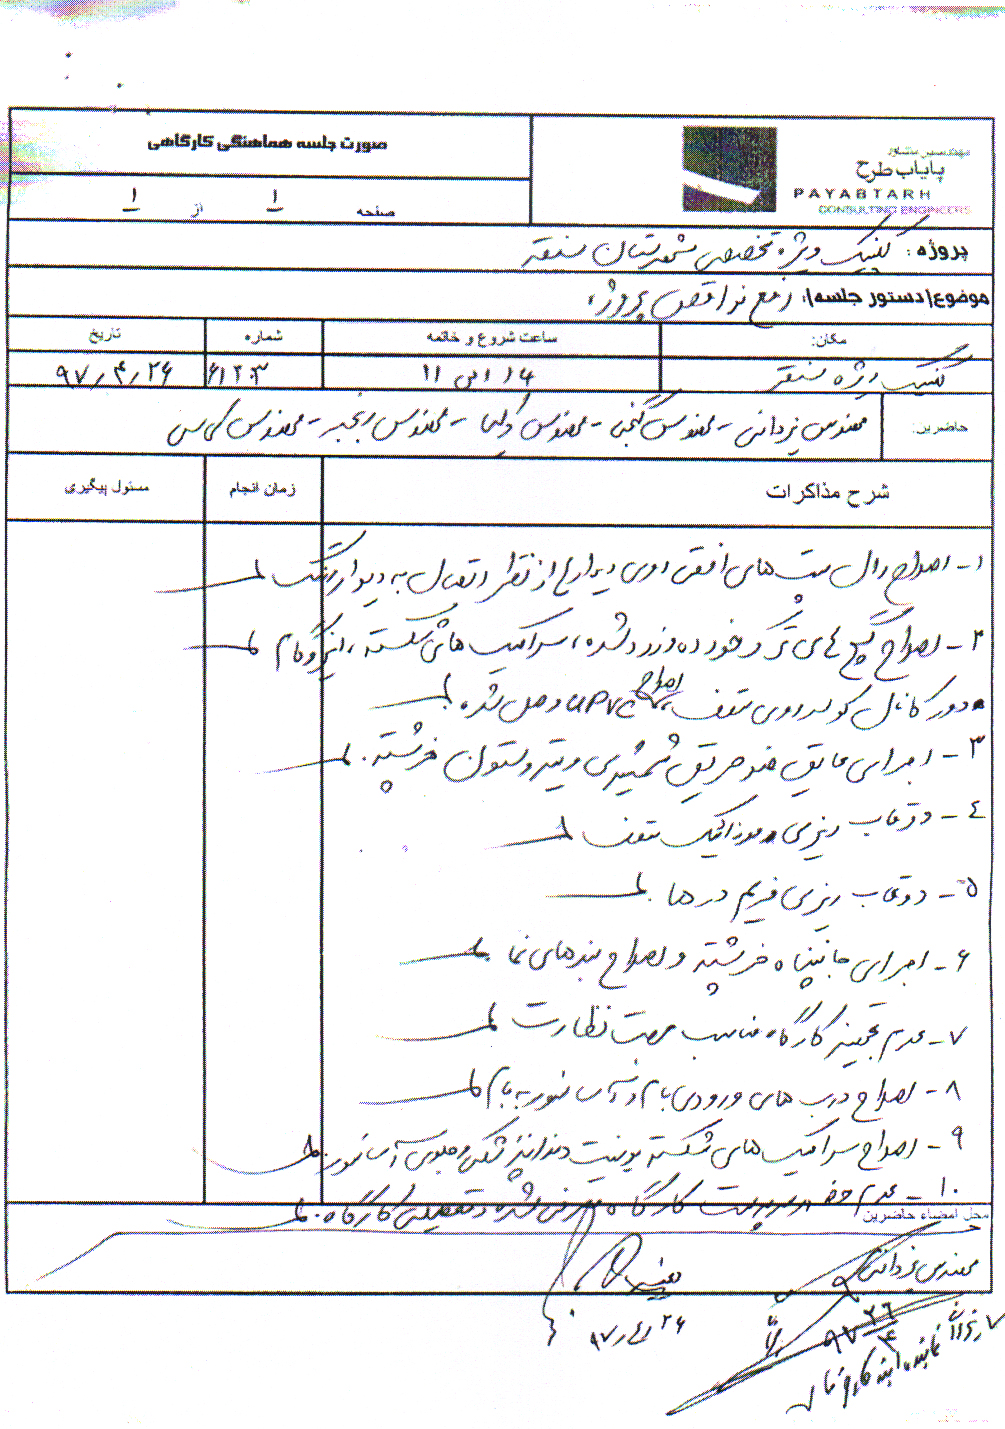 صورت جلسه هماهنگی کارگاهی
مهندسین مشاور
پایاب طرح
PAYABTARH
CONSULTING ENGINEERS
صفحه ۱ از ۱
پروژه: کلینیک ویژه تخصصی شهرستان سنقر
موضوع/دستور جلسه: رفع نواقص پروژه
مکان: ساعت شروع و خاتمه شماره تاریخ
کلینیک ویژه سنقر ۱۴ الی ۱۱ ۹۷/۴/۲۶
حاضرین: مهندس یزدانی - مهندس گنجی - مهندس - مهندس رنجبر - مهندس
شرح مذاکرات زمان انجام مسئول پیگیری
۱- اصلاح وال پست های افقی روی دیوارها از نظر اتصال به دیوار
۲- اصلاح گچ های ترک خورده و زرد شده، سرامیک های شکسته،
دور کانال کولر روی سقف، اصلاح UPVC وصل شده
۳- اجرای عایق ضد حریق و ستون خرپشته.
۴- دوغاب ریزی موزائیک سقف
۵- دوغاب ریزی فریم درها
۶- اجرای جانپناه خرپشته و اصلاح بندهای نما
۷- عدم تجهیز کارگاه مناسب جهت نظارت
۸- اصلاح درب های ورودی بام و آسانسور به بام
۹- اصلاح سرامیک های شکسته یونیت دندانپزشکی و جلوی آسانسور
۱۰- عدم حضور سرپرست کارگاه معرفی شده و تعطیلی کارگاه.
محل امضاء حاضرین
مهندس یزدانی
۹۷/۴/۲۶
۹۷/۴/۲۶
نماینده